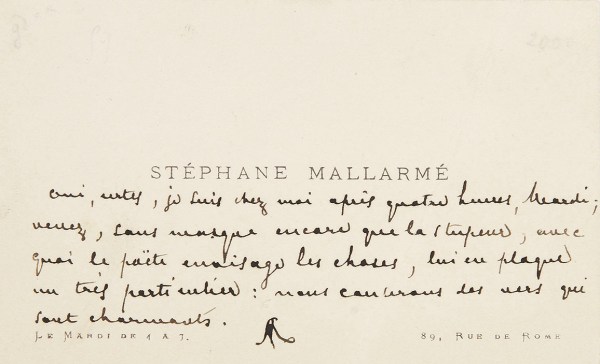 STÉPHANE MALLARMÉ
oui, certes, je suis chez moi après quatre heures, Mardi;
venez, sans masque encore que la stupeur, avec
quoi le poëte envisage les choses, lui en plaque
un très particulier : nous causerons des vers qui
sont charmants.
LE MARDI DE 4 A 7.
89, RUE DE ROME